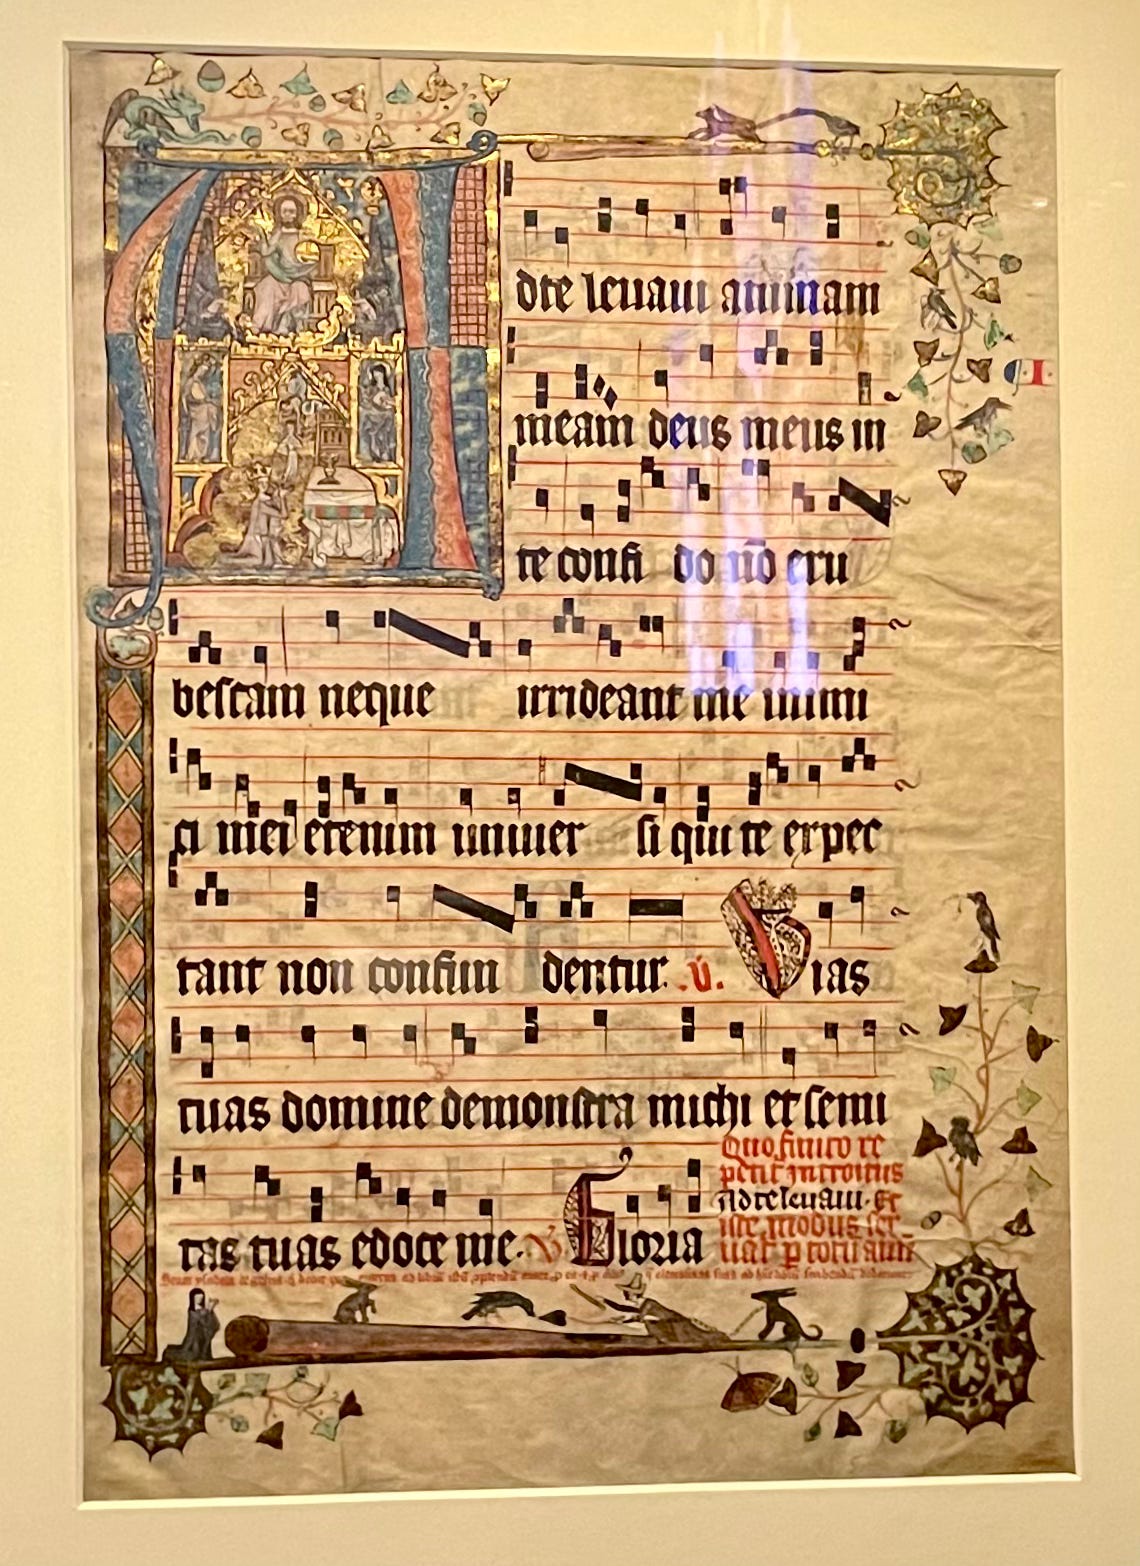 Adte levavi animam
·I·
meam deus meus in
te confi do nō eru
bescam neque irrideant me inimi
ci mei etenim univer si qui te expec
tant non confun dentur. .v̇. Vias
tuas domine demonstra michi et semi
Quo finito re
petit᷑ introitus
Ad te levavi. Et
iste modus ser
tas tuas edoce me. V Gloria
vat᷑ p totū